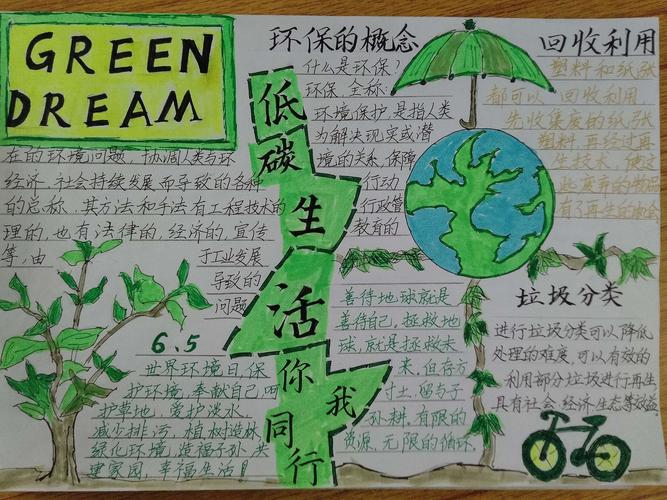 GREEN
DREAM
环保的概念
什么是环保?
环保 全称:
环境保护,是指人类
为解决现实或潜
在的环境问题,协调人类与环
境的关系,保障
经济、社会持续发展而导致的各种
行动
的总称。其方法和手法有工程技术的
行政管
理的,也有法律的,经济的,宣传
教育的
等,由
于工业发展
导致的
问题
低碳生活你我同行
回收利用
塑料和纸张
都可以回收利用,
先收集废的纸张
塑料,再经过再
6.5
世界环境日,保
护环境,奉献自己,呵
护草地,爱护淡水,
减少排污,植树造林
绿化环境,造福子孙,共
建家园,幸福生活!
善待地球就是
善待自己,拯救地
球,就是拯救未
来,但存方
寸土,留与子
孙耕。有限的
资源,无限的循环。
垃圾分类
进行垃圾分类可以降低
处理的难度,可以有效的
利用部分垃圾进行再生
具有社会、经济、生态等效益